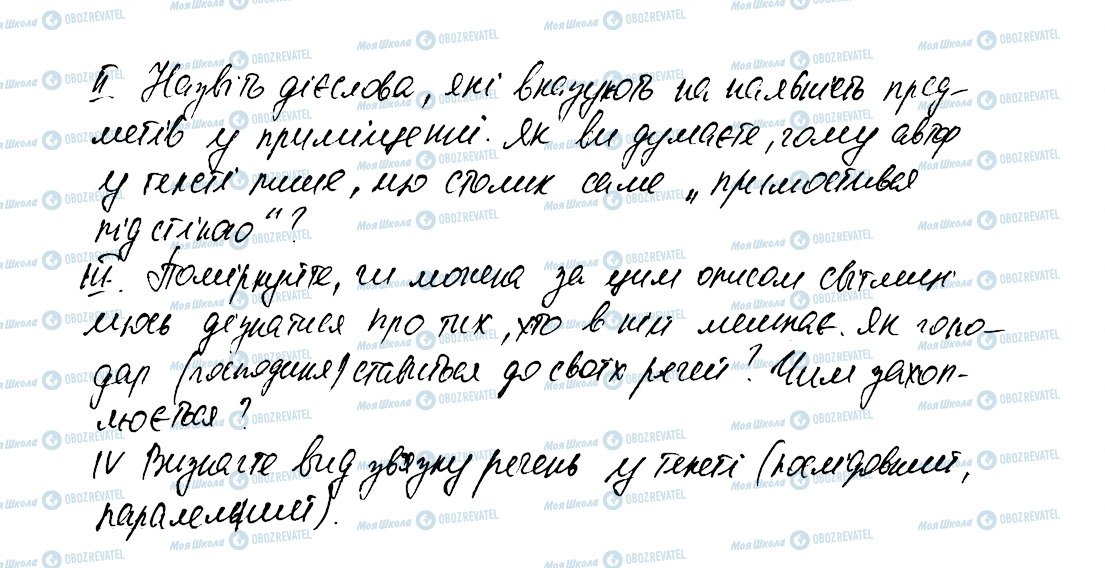 II. Назвіть дієслова, які вказують на наявність пред-
метів у приміщенні. Як ви думаєте, чому автор
у тексті пише, що столик саме „примостився
під стіною"?
III. Поміркуйте, чи можна за цим описом світлини
щось дізнатися про тих, хто в ній мешкає. Як госпо-
дар (господиня) ставиться до своїх речей? Чим захоп-
люється?
IV Визначте вид зв'язку речень у тексті (послідовний,
паралельний).